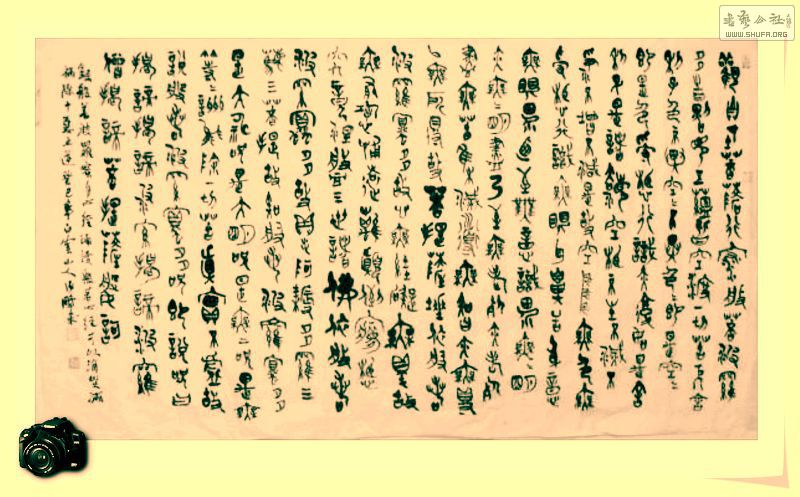 觀自在菩薩行深般若波羅
蜜多時照見五蘊皆空度一切苦厄舍
利子色不異空空不異色色即是空空
即是色受想行識亦復如是舍
利子是諸法空相不生不滅不
垢不淨不增不減是故空中無色無
受想行識無眼耳鼻舌身意
無眼界乃至無意識界無無明
亦無無明盡乃至無老死亦無老死
盡無苦集滅道無智亦無得
以無所得故菩提薩埵依般若
波羅蜜多故心無罣礙無罣礙故
無有恐怖遠離顛倒夢想
究竟涅槃三世諸佛依般若
波羅蜜多故得阿耨多羅三
藐三菩提故知般若波羅蜜多
是大神咒是大明咒是無上咒是無
等等咒能除一切苦真實不虛故
說般若波羅蜜多咒即說咒曰
揭諦揭諦波羅揭諦波羅
僧揭諦菩提薩婆訶
般若波羅蜜多心經
书艺公社
WWW.SHUFA.ORG